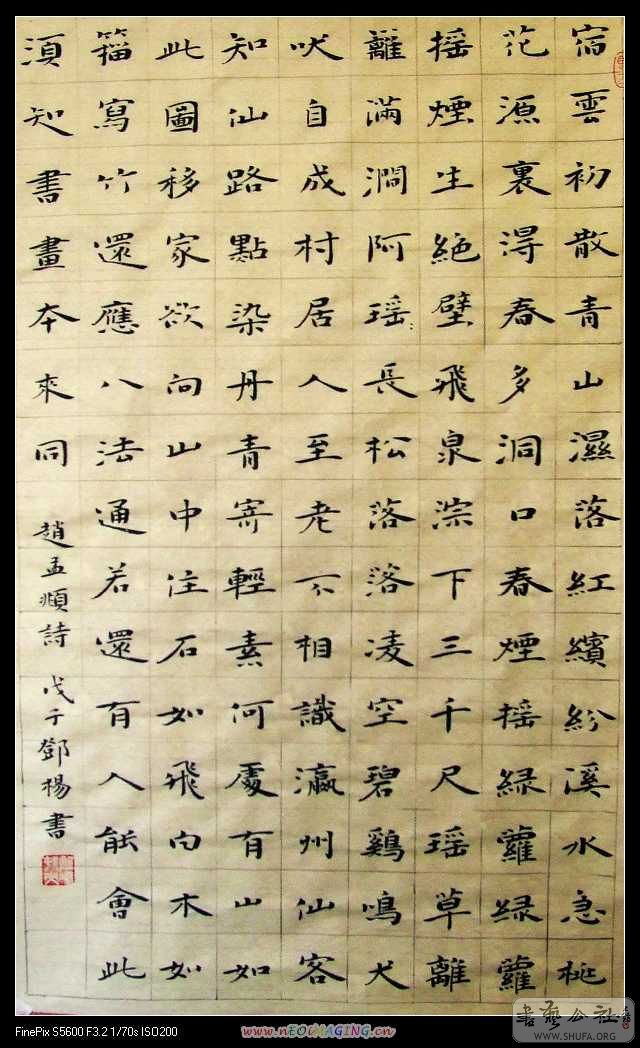 宿雲初散青山濕落紅繽紛溪水急桃
花源裏得春多洞口春煙搖綠蘿綠蘿
搖煙生絕壁飛泉淙下三千尺瑤草離
離滿澗阿瑤長松落落凌空碧鷄鳴犬
吠自成村居人至老不相識瀛州仙客
知仙路點染丹青寄輕素何處有山如
此圖移家欲向山中注石如飛白木如
籀寫竹還應八法通若還有人能會此
須知書畫本來同
趙孟頫詩 戊子鄧楊書
書藝公社
WWW.SHUFA.ORG
FinePix S5600 F3.2 1/70s ISO200
www.nEOiMAGING.cn